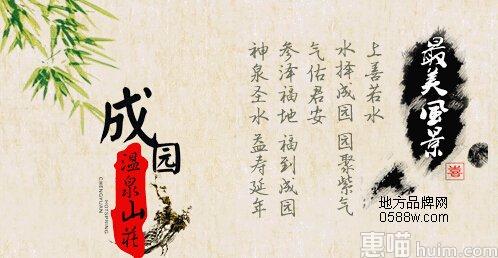 最美風景
上善若水
水择成园 园聚紫气
气佑君安
参泽福地 福到成园
神泉圣水 益寿延年
成园
温泉山莊
HOTSPRING
CHENGYUAN
地方品牌网
0588w.com
惠喵 huim.com